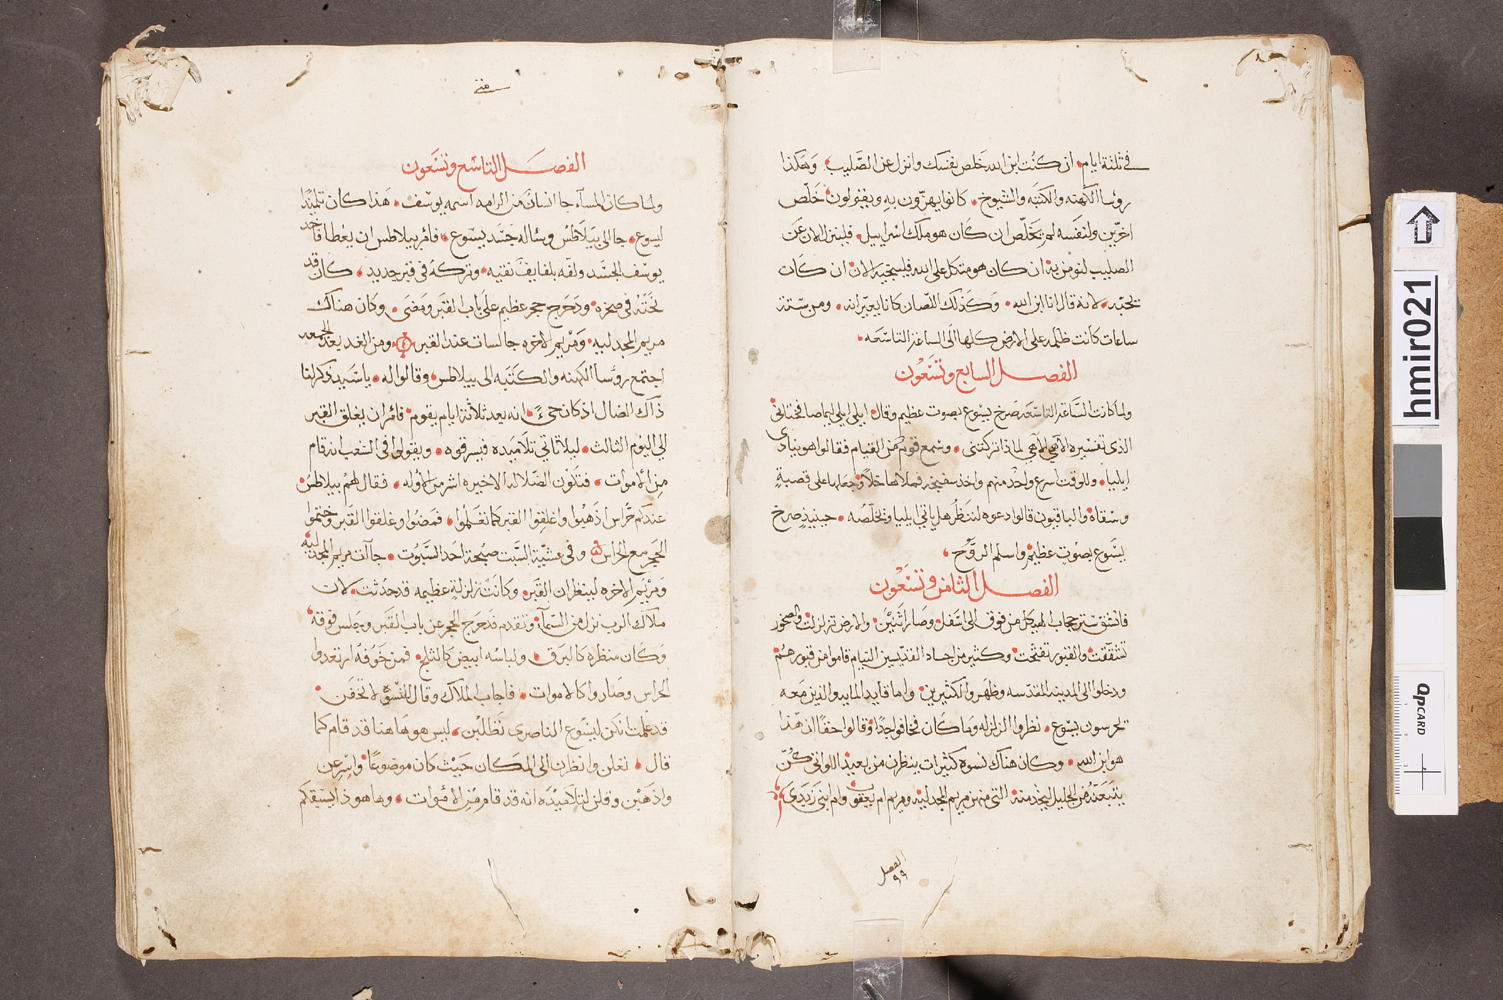 في ثلثة ايام، ان كنت ابن الله خلص نفسك وانزل عن الصليب، وهكذا
روسا الكهنه والكتبه والشيوخ، كانوا يهزّون به ويقولون خلّص
اخرين ولنفسه لم يخلّص ان كان هو ملك اسرابيل، فلينزل الان عن
الصليب لنومن به، ان كان هو متكل على الله فلينجّيه الان، ان كان
يحبّه، لانه قال انا ابن الله، وكذلك اللصان كانا يعيّرانه، ومن ستة
ساعات كانت ظلمه على الارض كلها الى الساعة التاسعه،
الفصل السابع وتسعون
ولما كانت الساعة التاسعه صرخ يسوع بصوت عظيم وقال، ايلي ايلي ليماصافختاني
الذي تفسيره الاهي الاهي لماذا تركتني، وسمع قوم من القيام فقالوا هو ينادي
ايليا، وللوقت اسرع واحد منهم واخذ سفنجه فملاها خلاً وجعلها على قصبةٍ
وسقاه والباقيون قالوا دعوه لننظر هل ياتي ايليا ويخلّصه، حينيذ صرخ
يسوع بصوت عظيم واسلم الروح،
الفصل الثامن وتسعون
فانشق ستر حجاب الهيكل من فوق الى اسفل وصار اثنين، والارض تزلزلت والصخور
تشققت والقبور تفتحت، وكثير من اجساد القديسين النيام قاموا من قبورهم
ودخلوا الى المدينه المقدسه وظهروا لكثيرين، واما قايد المايه والذين معه
يحرسون يسوع، نظروا الزلزله وما كان فخافوا جداً وقالوا حقاً ان هذا
هو ابن الله، وكان هناك نسوه كثيرات ينظرن من بعيد اللواتي كنّ
يتبعنه من الجليل يخدمنه، التي منهن مريم المجدليه ومريم ام يعقوب وام ابني زبدي
الفصل
٩٩
الفصل التاسع وتسعون
ولما كان المسآء جا انسان من الرامه اسمه يوسف، هذا كان تلميذا
ليسوع، جا الى بيلاطس وساله جسد يسوع، فامر بيلاطس ان يعطا فاخد
يوسف الجسد ولفه بلفايف نقيه، وتركه في قبر جديد، كان قد
نحته في صخره، ودحرج حجر عظيم على باب القبر ومضى، وكان هناك
مريم المجدليه، ومريم الاخره جالسات عند القبر، ومن الغد بعد الجمعه
اجتمع روسا الكهنه والكتبه الى بيلاطس، وقالوا له، ياسيد ذكرنا
ذاك الضال اذ كان حيّ، انه بعد ثلاثة ايام يقوم، فامر ان يغلق القبر
الى اليوم الثالث، ليلا تاتي تلاميده فيسرقوه، ويقولوا في الشعب انه قام
من الأموات، فتكون الضلاله الاخيره اشر من الأوله، فقال لهم بيلاطس،
عندكم حراس اذهبوا واغلقوا القبر كما تعلموا، فمضوا وغلقوا القبر وختموا
الحجر مع الحراس وفي عشية السبت صبحة احد السبوت، جاآت مريم المجدليه
ومريم الاخره لينظران القبر، وكانت زلزلة عظيمه قد حدثت، لان
ملاك الرب نزل من السمآء، وتقدم فدحرج الحجر عن باب القبر وجلس فوقه،
وكان منظره كالبرق، ولباسه ابيض كالثلج، فمن خوفه ارتعدوا
الحراس وصاروا كالاموات، فاجاب الملاك وقال للنسوّ لا تخفن،
قد علمت انكن ليسوع الناصري تطلبن، ليس هو هاهنا قد قام كما
قال، تعلن وانظرن الى المكان حيث كان موضوعاً، واسرعن
واذهبن وقلن لتلاميده انه قد قام من الأموات، وها هوذا يسبقكم